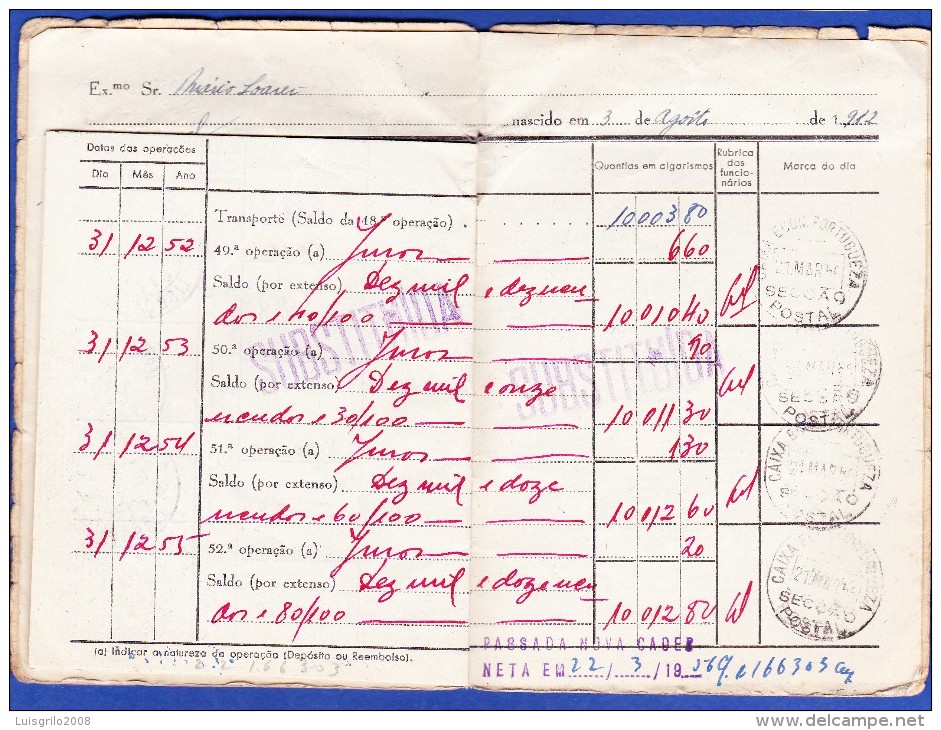 Ex.mo Sr. Mário Soares
nascido em 3 de Agosto de 1.912
Datas das operações
Dia Mês Ano
Quantias em algarismos
Rubrica dos funcio-nários
Marca do dia
Transporte (Saldo da 48.ª operação) 1000380
31 12 52 49.ª operação (a) Juros 660
Saldo (por extenso) Dez mil e dez escu
dos e 40/100 1001040
31 12 53 50.ª operação (a) Juros 90
Saldo (por extenso) Dez mil e onze
escudos e 30/100 1001130
31 12 54 51.ª operação (a) Juros 130
Saldo (por extenso) Dez mil e doze
escudos e 60/100 1001260
31 12 55 52.ª operação (a) Juros 20
Saldo (por extenso) Dez mil e doze escu
dos e 80/100 1001280
SUBSTITUÍDA
SUBSTITUÍDA
ECON. PORTUGUEZA
21 MAR 56
SECÇÃO
POSTAL
SECÇÃO
POSTAL
CAIXA
21 MAR
POSTAL
CAIXA
21 MAR
SECÇÃO
POSTAL
(a) Indicar a natureza da operação (Depósito ou Reembolso).
PASSADA NOVA CADER
NETA EM 22/3/19 56 166303
Luisgrilo2008
www.delcampe.net